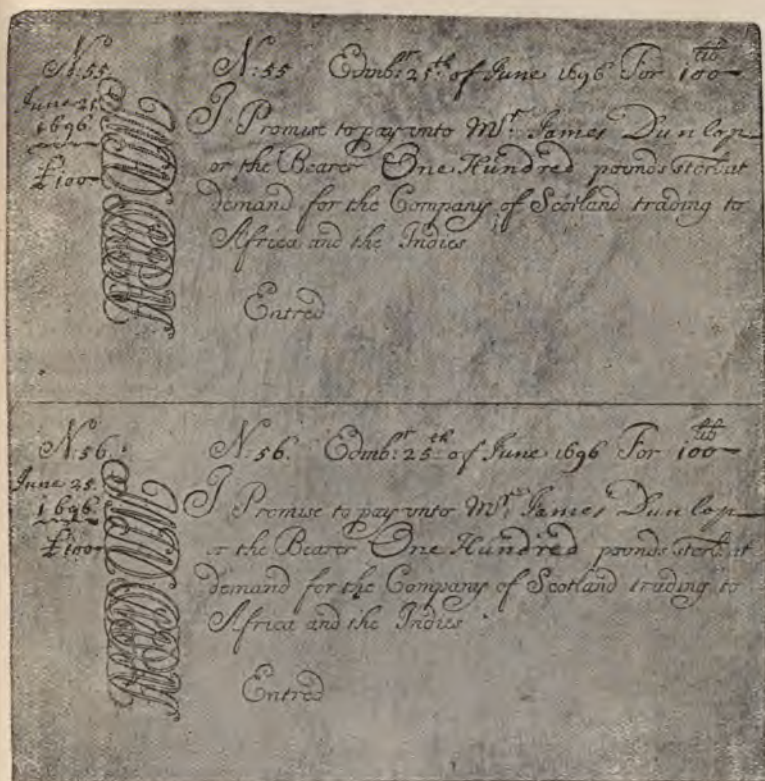 N:55
June 25
1696
£100
N:55 Edinb:r 25th of June 1696 For 100 lib
I Promise to pay unto Mr: James Dunlop
or the Bearer One Hundred pounds sterl: at
demand for the Company of Scotland trading to
Africa and the Indies
Entred
N:56.
June 25.
1696
£100
N:56. Edinb:r 25th of June 1696 For 100 lib
I Promise to pay unto Mr: James Dunlop
or the Bearer One Hundred pounds sterl: at
demand for the Company of Scotland trading to
Africa and the Indies
Entred